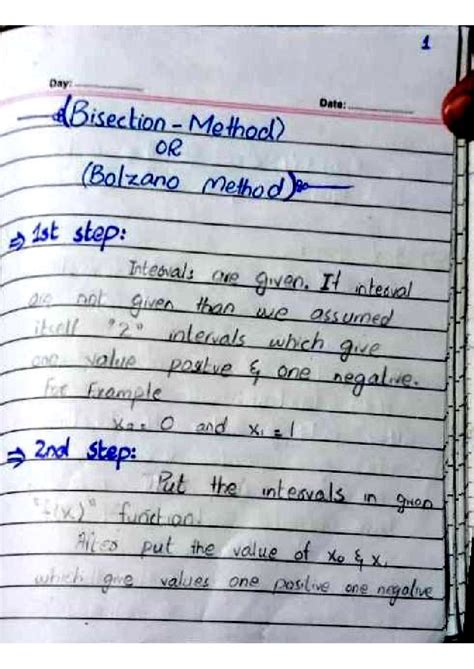 1
Day:
Date:
(Bisection - Method)
OR
(Bolzano Method)
⇒ 1st step:
Intervals are given. If interval
are not given than we assumed
itself "2" intervals which give
one value postve & one negative.
For Example
x₀ = 0 and x₁ = 1
⇒ 2nd step:
Put the intervals in given
"f(x)" function.
After put the value of x₀ & x₁
which give values one positive one negative